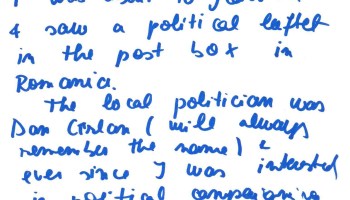 & saw a political leaflet
in the post box in
Romania.
The local politician was
Dan Cristan ( will always
remember the name) &
ever since I was intersted
in political campaigning